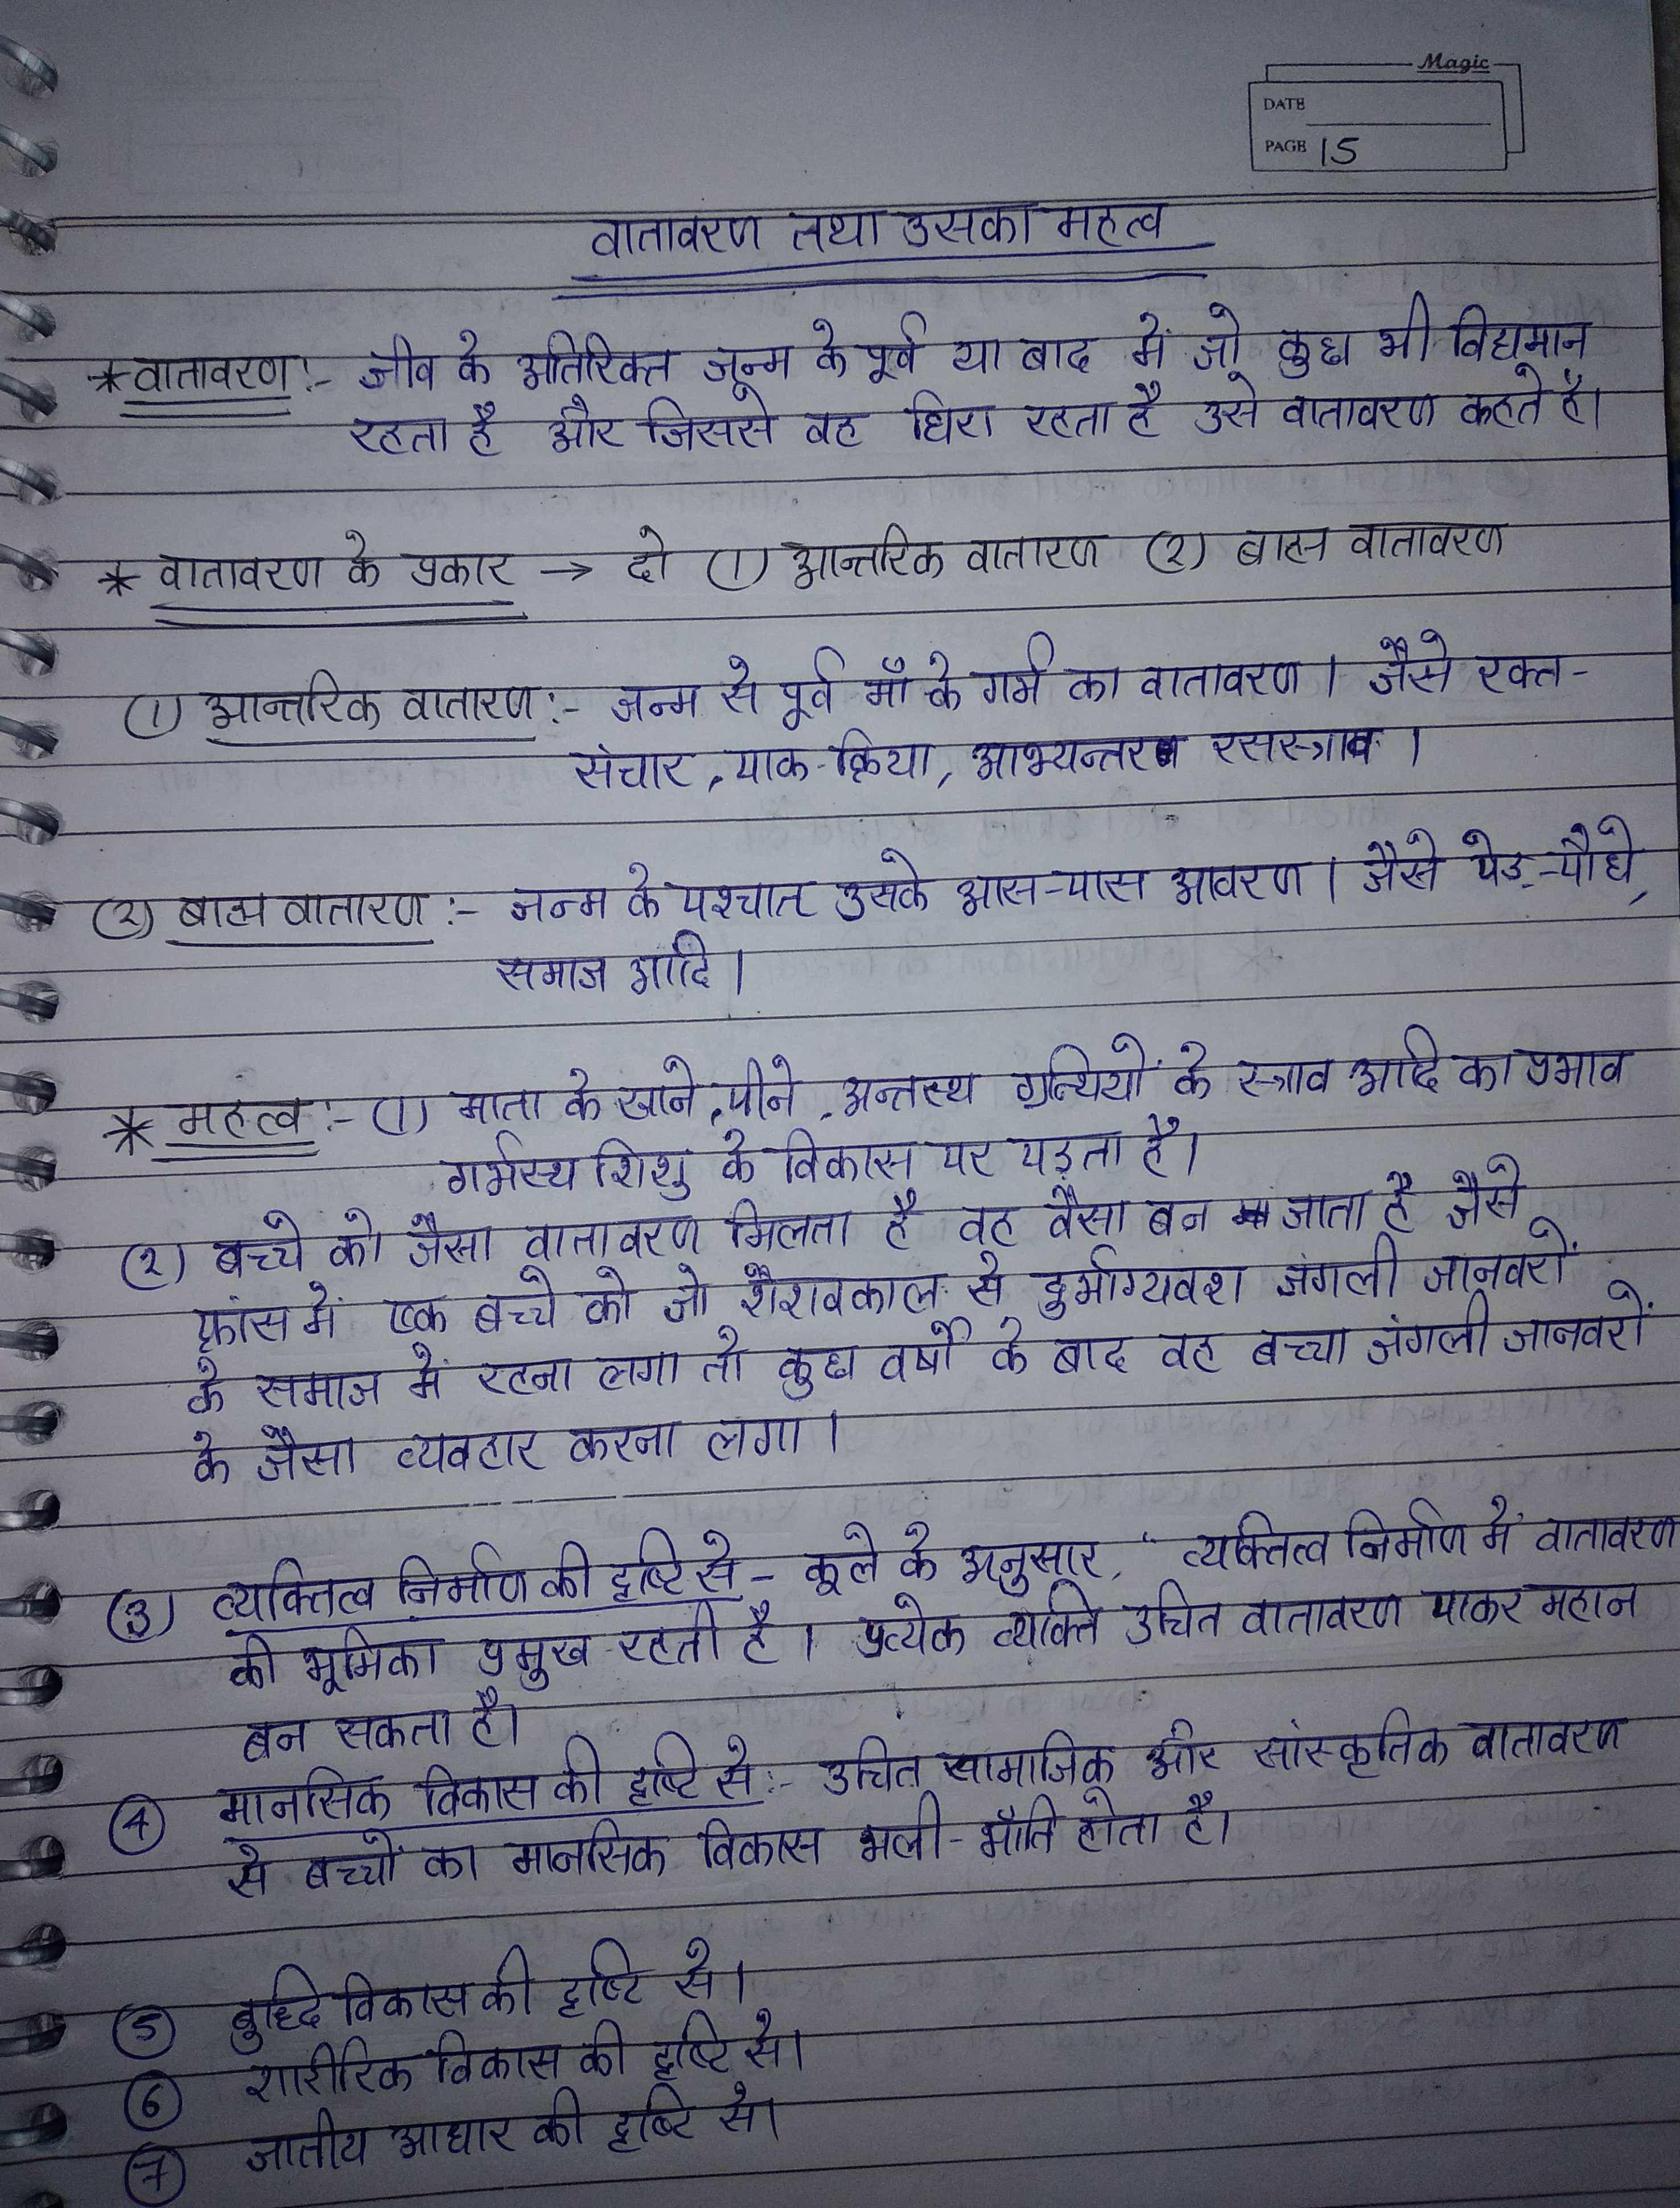 Magic
DATE
PAGE 15
वातावरण तथा उसका महत्व
*वातावरण:- जीव के अतिरिक्त जन्म के पूर्व या बाद में जो कुछ भी विद्यमान
रहता है और जिससे वह घिरा रहता है उसे वातावरण कहते है।
* वातावरण के प्रकार → दो (1) आन्तरिक वातारण (2) बाह्य वातावरण
(1) आन्तरिक वातारण:- जन्म से पूर्व माँ के गर्भ का वातावरण। जैसे रक्त-
संचार, पाक-क्रिया, आभ्यन्तर रसस्त्राव।
(2) बाह्य वातारण:- जन्म के पश्चात उसके आस-पास आवरण। जैसे पेड़-पौधे,
समाज आदि।
* महत्व:- (1) माता के खाने, पीने, अन्तस्थ ग्रन्थियों के स्त्राव आदि का प्रभाव
गर्भस्थ शिशु के विकास पर पड़ता है।
(2) बच्चे को जैसा वातावरण मिलता है वह वैसा बन जाता है जैसे
फ्रांस में एक बच्चे को जो शैशवकाल से दुर्भाग्यवश जंगली जानवरों
के समाज में रहना लगा तो कुछ वर्षों के बाद वह बच्चा जंगली जानवरों
के जैसा व्यवहार करना लगा।
(3) व्यक्तित्व निर्माण की दृष्टि से - कूले के अनुसार, "व्यक्तित्व निर्माण में वातावरण
की भूमिका प्रमुख रहती है। प्रत्येक व्यक्ति उचित वातावरण पाकर महान
बन सकता है।
(4) मानसिक विकास की दृष्टि से:- उचित सामाजिक और सांस्कृतिक वातावरण
से बच्चों का मानसिक विकास भली-भाँति होता है।
(5) बुद्धि विकास की दृष्टि से।
(6) शारीरिक विकास की दृष्टि से।
(7) जातीय आधार की दृष्टि से।